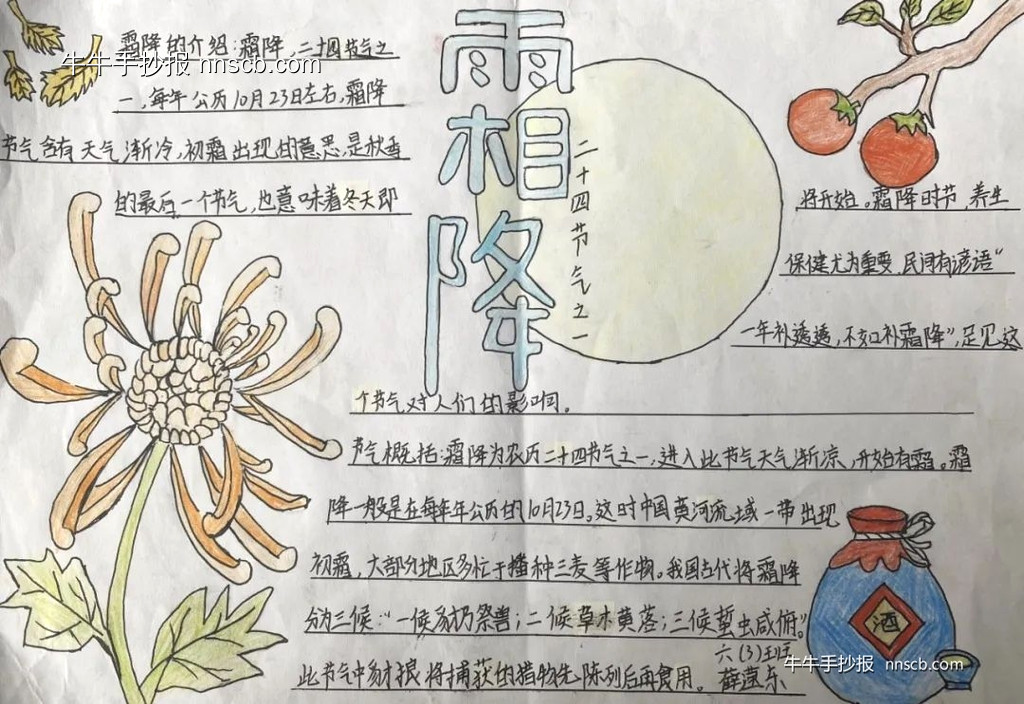 霜降
二十四节气之一
霜降的介绍:霜降,二十四节气之
牛牛手抄报 nnscb.com
一,每年公历10月23日左右,霜降
节气含有天气渐冷,初霜出现的意思,是秋季
的最后一个节气,也意味着冬天即
将开始。霜降时节,养生
保健尤为重要,民间有谚语“
一年补透透,不如补霜降”,足见这
个节气对人们的影响。
节气概括:霜降为农历二十四节气之一,进入此节气天气渐凉,开始有霜。霜
降一般是在每年年公历的10月23日。这时中国黄河流域一带出现
初霜,大部分地区多忙于播种三麦等作物。我国古代将霜降
分为三候:“一候豺乃祭兽;二候草木黄落;三候蜇虫咸俯。”
此节气中豺狼将捕获的猎物先陈列后再食用。
六(3)班
薛 东
酒
牛牛手抄报 nnscb.com